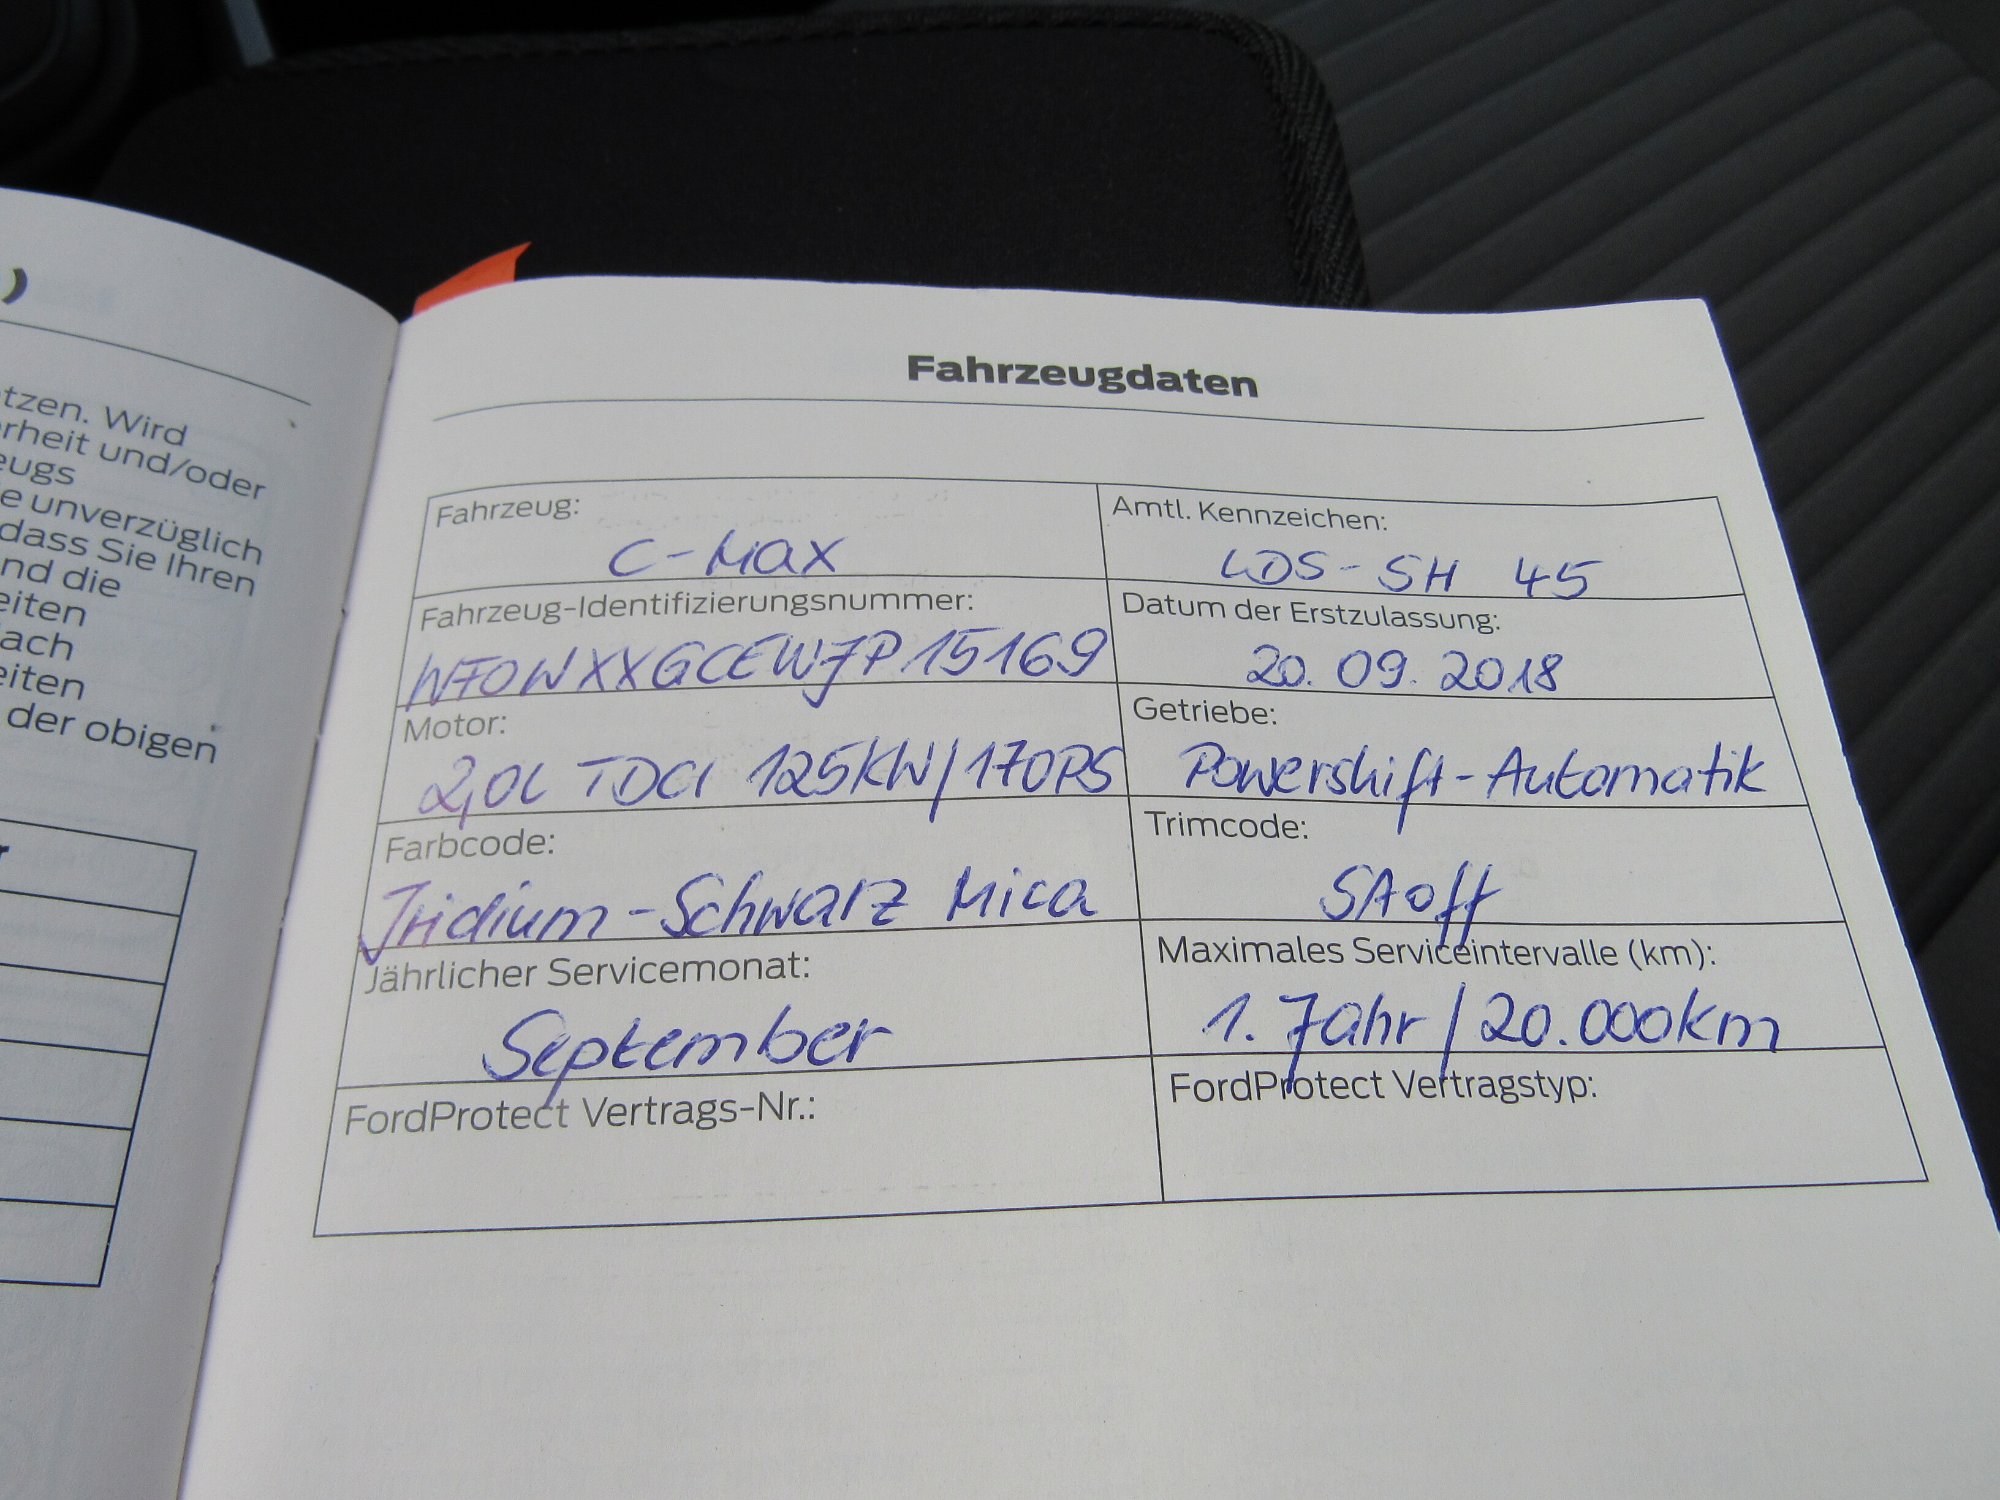 )
tzen. Wird
rheit und/oder
eugs
e unverzüglich
dass Sie Ihren
nd die
eiten
ach
eiten
der obigen
r
Fahrzeugdaten
Fahrzeug:
C-Max
Amtl. Kennzeichen:
LDS-SH 45
Fahrzeug-Identifizierungsnummer:
WF0WXXGCEWJP15169
Datum der Erstzulassung:
20.09.2018
Motor:
2,0L TDCI 125KW/170PS
Getriebe:
Powershift-Automatik
Farbcode:
Iridium-Schwarz Mica
Trimcode:
Jährlicher Servicemonat:
September
Maximales Serviceintervalle (km):
1. Jahr/20.000km
FordProtect Vertrags-Nr.:
FordProtect Vertragstyp: